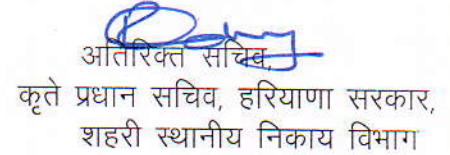 अतिरिक्त सचिव,
कृते प्रधान सचिव, हरियाणा सरकार,
शहरी स्थानीय निकाय विभाग